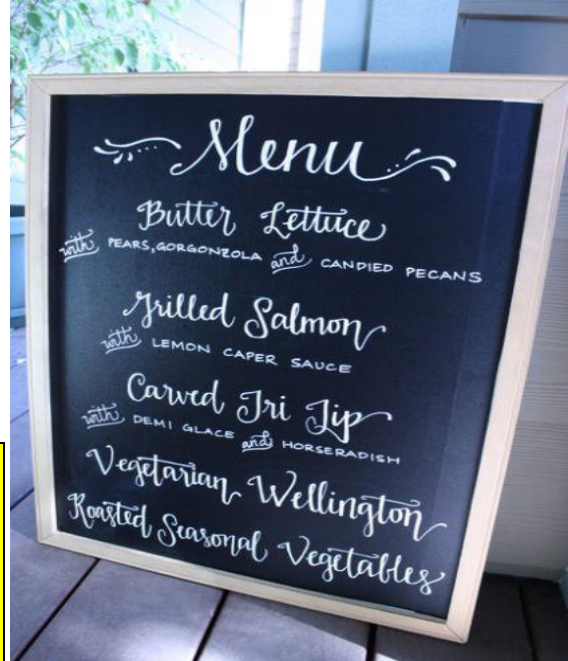 Menu
Butter Lettuce
with PEARS, GORGONZOLA and CANDIED PECANS
Grilled Salmon
with LEMON CAPER SAUCE
Carved Tri Tip
with DEMI GLACE and HORSERADISH
Vegetarian Wellington
Roasted Seasonal Vegetables